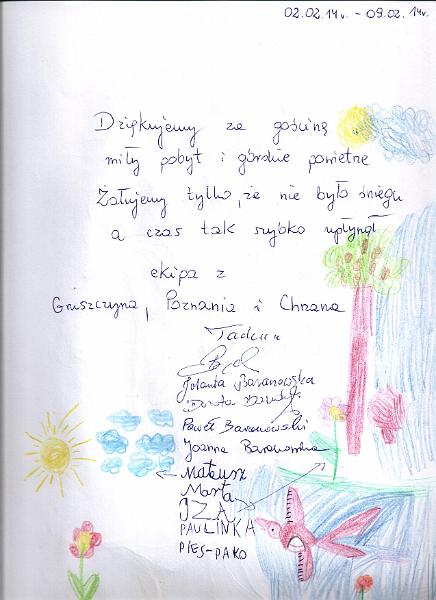 02.02.14r. - 09.02.14r.
Dziękujemy za gościnę
miły pobyt i górskie powietrze
Żałujemy tylko, że nie było śniegu
a czas tak szybko upłynął
ekipa z
Gruszczyna, Poznania i Chrzana
Tadeusz
Jolanta Baranowska
Dorota
Paweł Baranowski
Joanna Baranowska
Mateusz
Marta
IZA
PAULINKA
PIES-PAKO